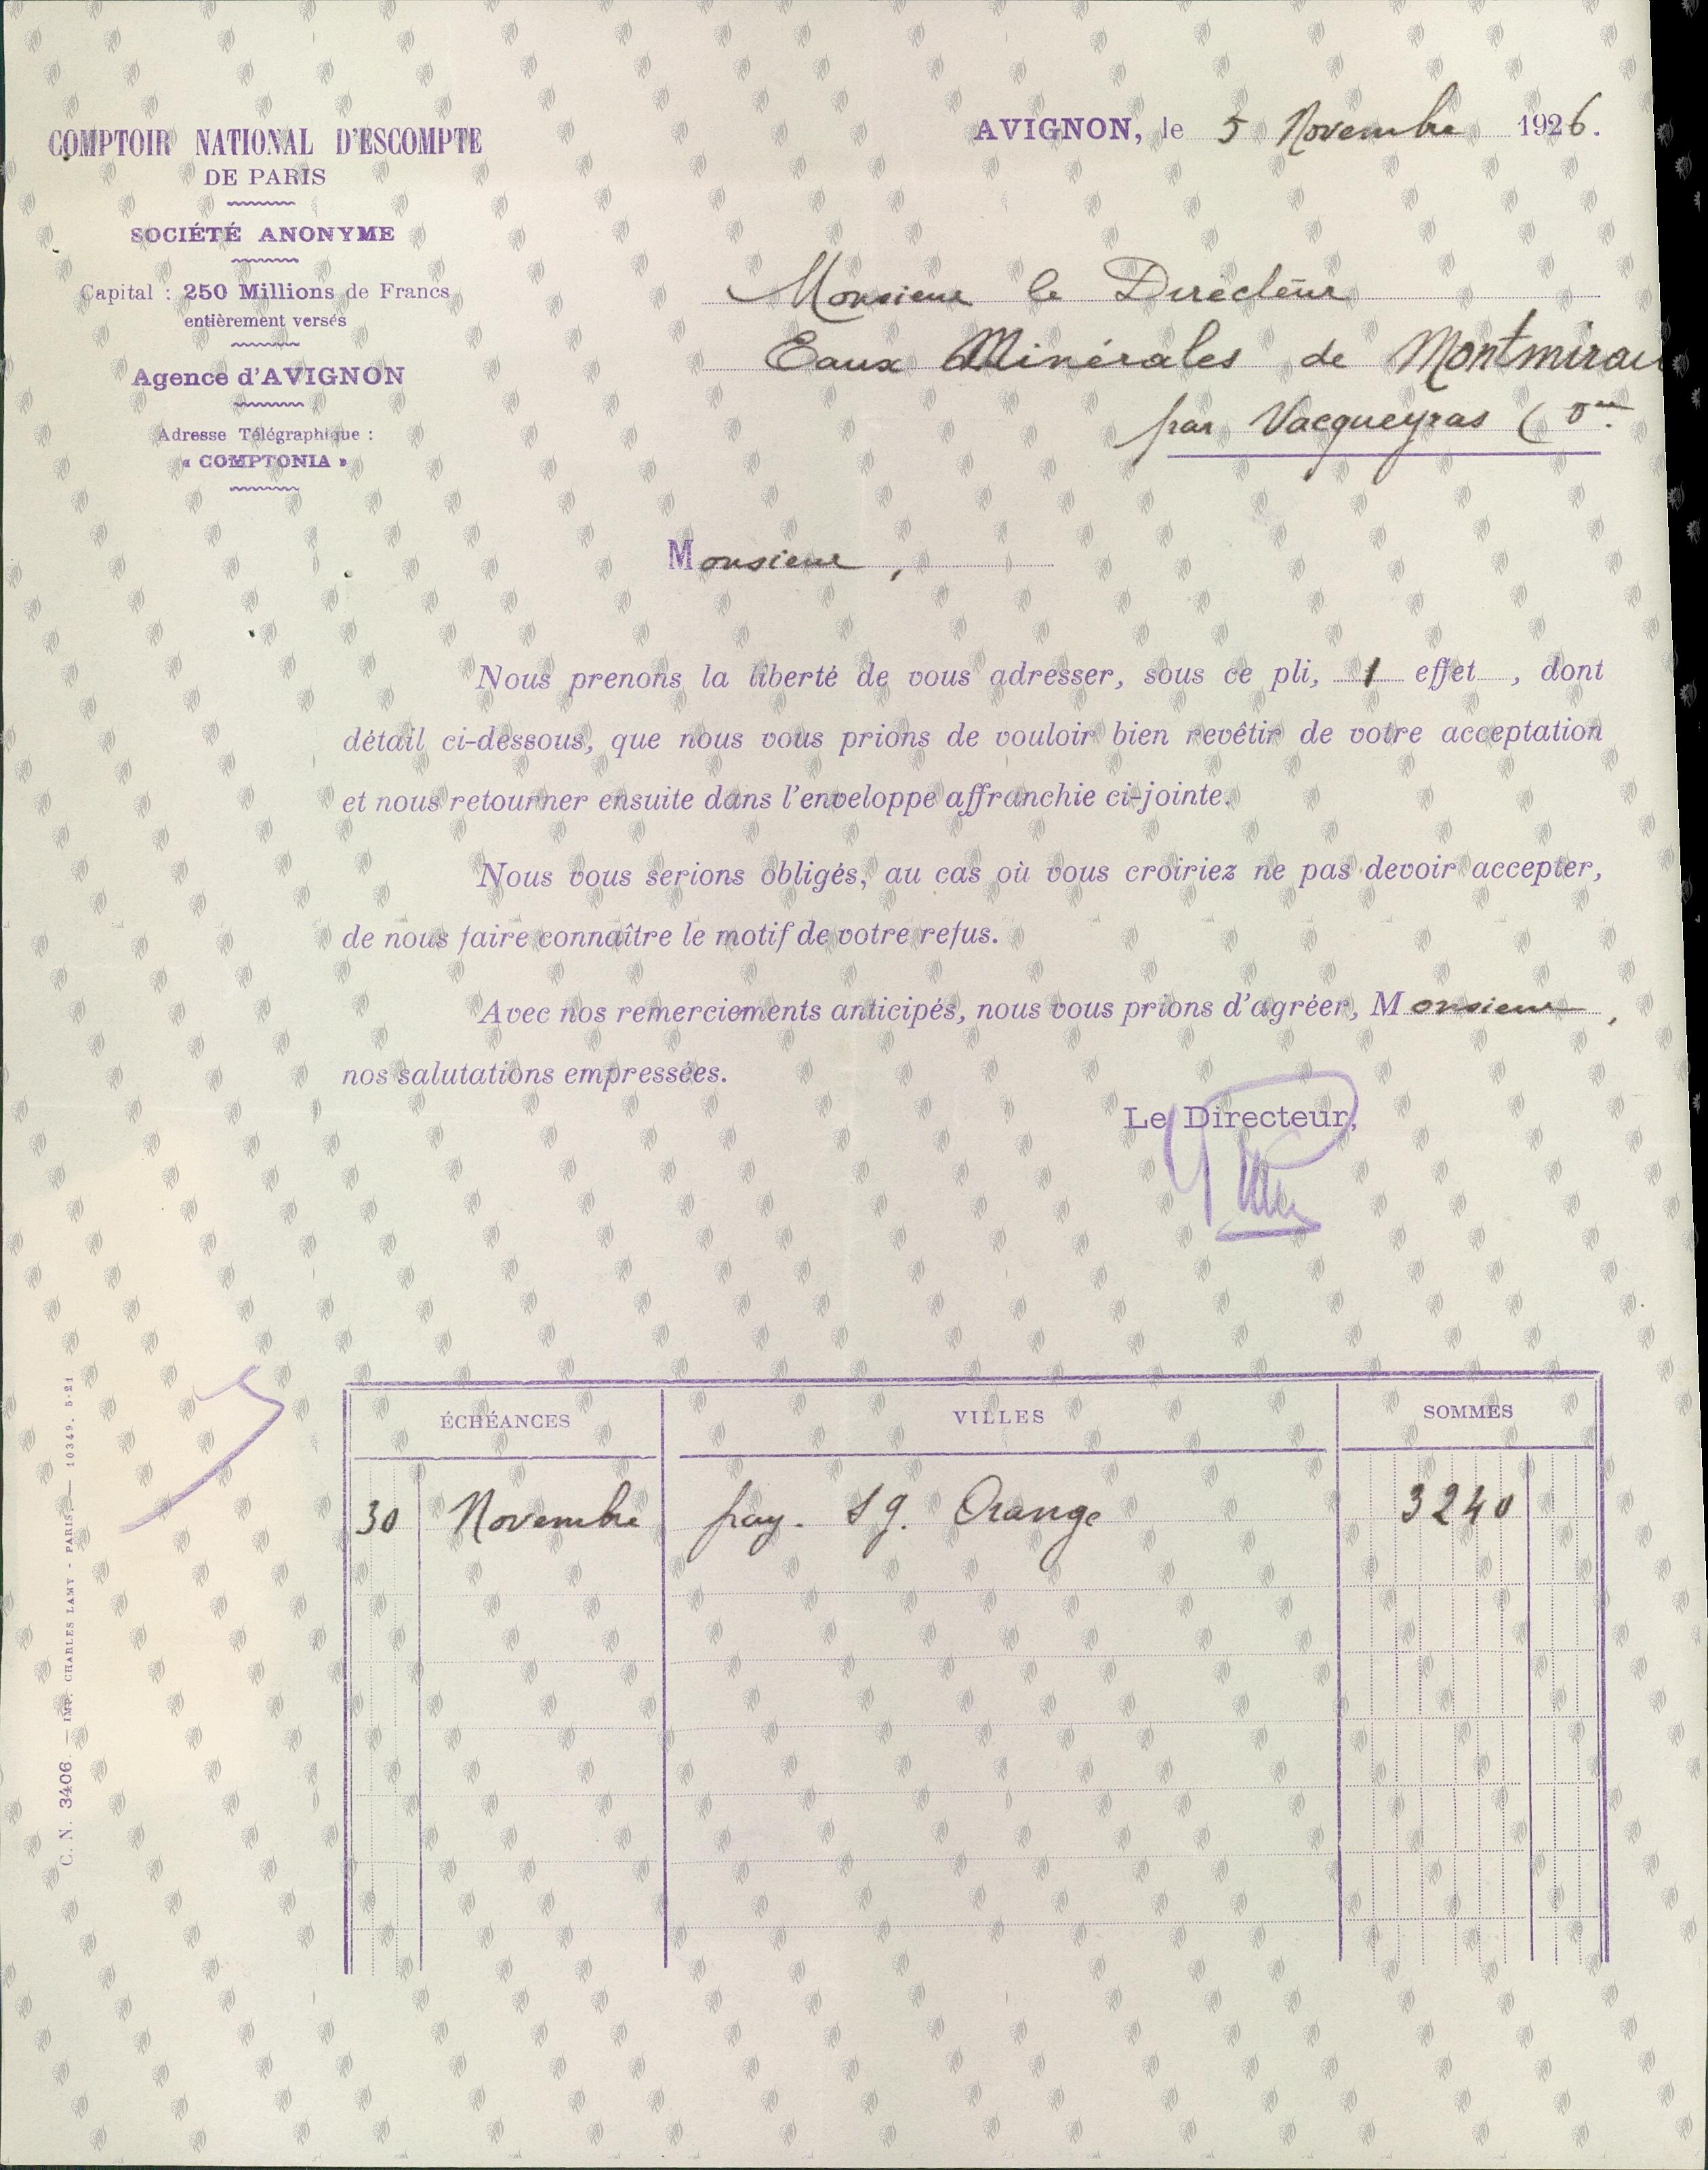 COMPTOIR NATIONAL D'ESCOMPTE
DE PARIS
SOCIÉTÉ ANONYME
Capital : 250 Millions de Francs
entièrement versés
Agence d'AVIGNON
Adresse Télégraphique :
« COMPTONIA »
AVIGNON, le 5 Novembre 1926.
Monsieur le Directeur
Eaux Minérales de Montmirai
par Vacqueyras (
Monsieur,
Nous prenons la liberté de vous adresser, sous ce pli, 1 effet, dont
détail ci-dessous, que nous vous prions de vouloir bien revêtir de votre acceptation
et nous retourner ensuite dans l'enveloppe affranchie ci-jointe.
Nous vous serions obligés, au cas où vous croiriez ne pas devoir accepter,
de nous faire connaître le motif de votre refus.
Avec nos remerciements anticipés, nous vous prions d'agréer, Monsieur,
nos salutations empressées.
Le Directeur,
ÉCHÉANCES VILLES SOMMES
30 Novembre pay. Orange 3240
C. N. 3406 — IMP. CHARLES LAMY - PARIS. — 10349. 5-21